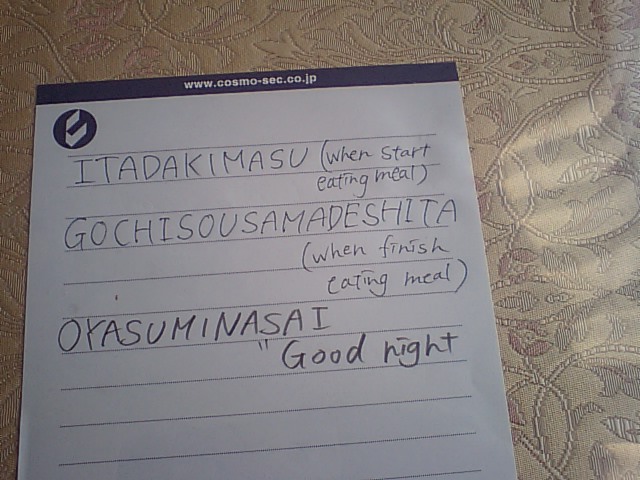 www.cosmo-sec.co.jp
ITADAKIMASU (when start
eating meal)
GOCHISOUSAMADESHITA
(when finish
eating meal)
OYASUMINASAI
" Good night